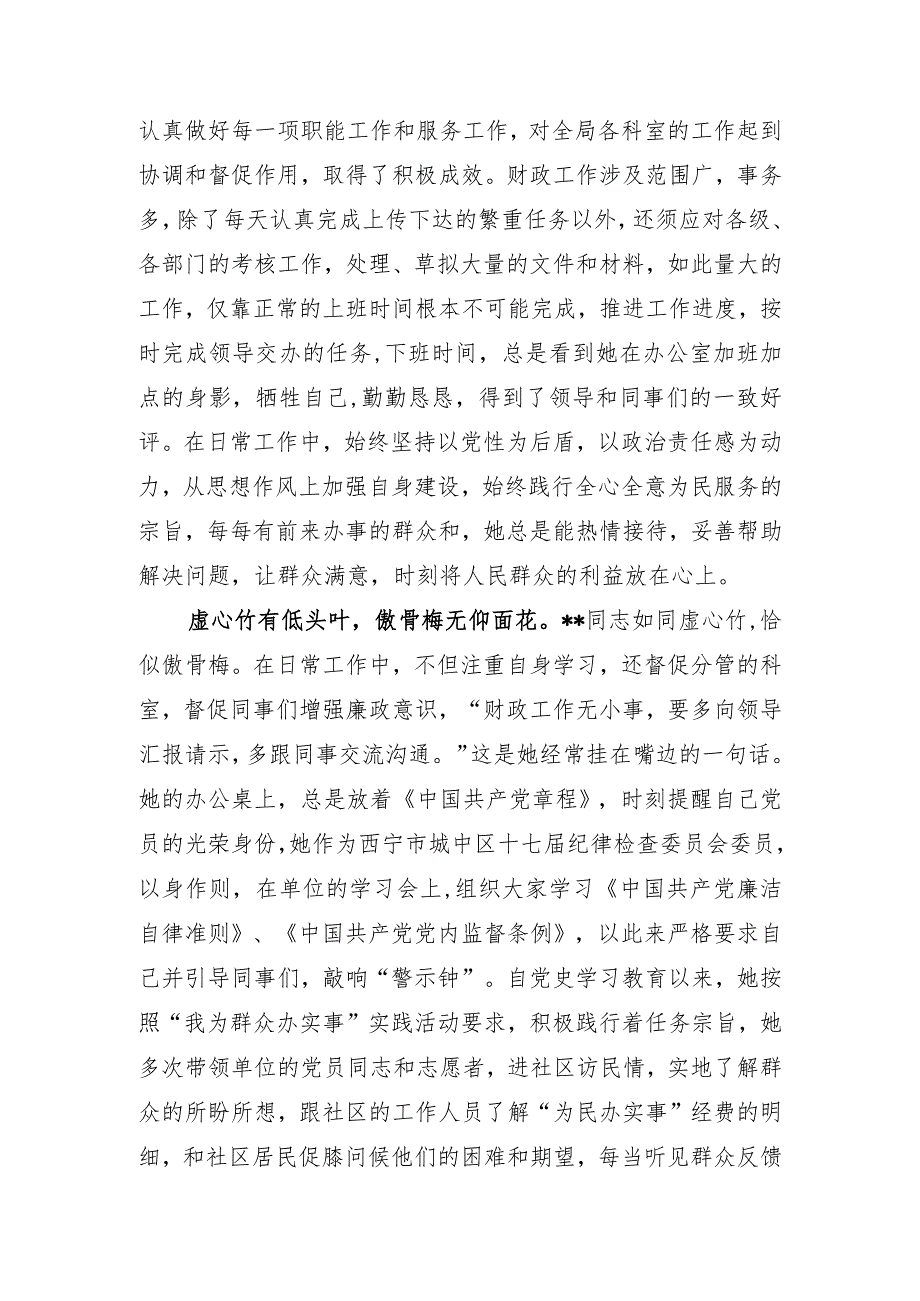 认真做好每一项职能工作和服务工作，对全局各科室的工作起到
协调和督促作用，取得了积极成效。财政工作涉及范围广，事务
多，除了每天认真完成上传下达的繁重任务以外，还须应对各级、
各部门的考核工作，处理、草拟大量的文件和材料，如此量大的
工作，仅靠正常的上班时间根本不可能完成，推进工作进度，按
时完成领导交办的任务,下班时间，总是看到她在办公室加班加
点的身影，牺牲自己,勤勤恳恳，得到了领导和同事们的一致好
评。在日常工作中，始终坚持以党性为后盾，以政治责任感为动
力，从思想作风上加强自身建设，始终践行全心全意为民服务的
宗旨，每每有前来办事的群众和，她总是能热情接待，妥善帮助
解决问题，让群众满意，时刻将人民群众的利益放在心上。
虚心竹有低头叶，傲骨梅无仰面花。**同志如同虚心竹,恰
似傲骨梅。在日常工作中，不但注重自身学习，还督促分管的科
室，督促同事们增强廉政意识，“财政工作无小事，要多向领导
汇报请示，多跟同事交流沟通。”这是她经常挂在嘴边的一句话。
她的办公桌上，总是放着《中国共产党章程》，时刻提醒自己党
员的光荣身份,她作为西宁市城中区十七届纪律检查委员会委员，
以身作则，在单位的学习会上,组织大家学习《中国共产党廉洁
自律准则》、《中国共产党党内监督条例》，以此来严格要求自
己并引导同事们，敲响“警示钟”。自党史学习教育以来，她按
照“我为群众办实事”实践活动要求，积极践行着任务宗旨，她
多次带领单位的党员同志和志愿者，进社区访民情，实地了解群
众的所盼所想，跟社区的工作人员了解“为民办实事”经费的明
细，和社区居民促膝问候他们的困难和期望，每当听见群众反馈